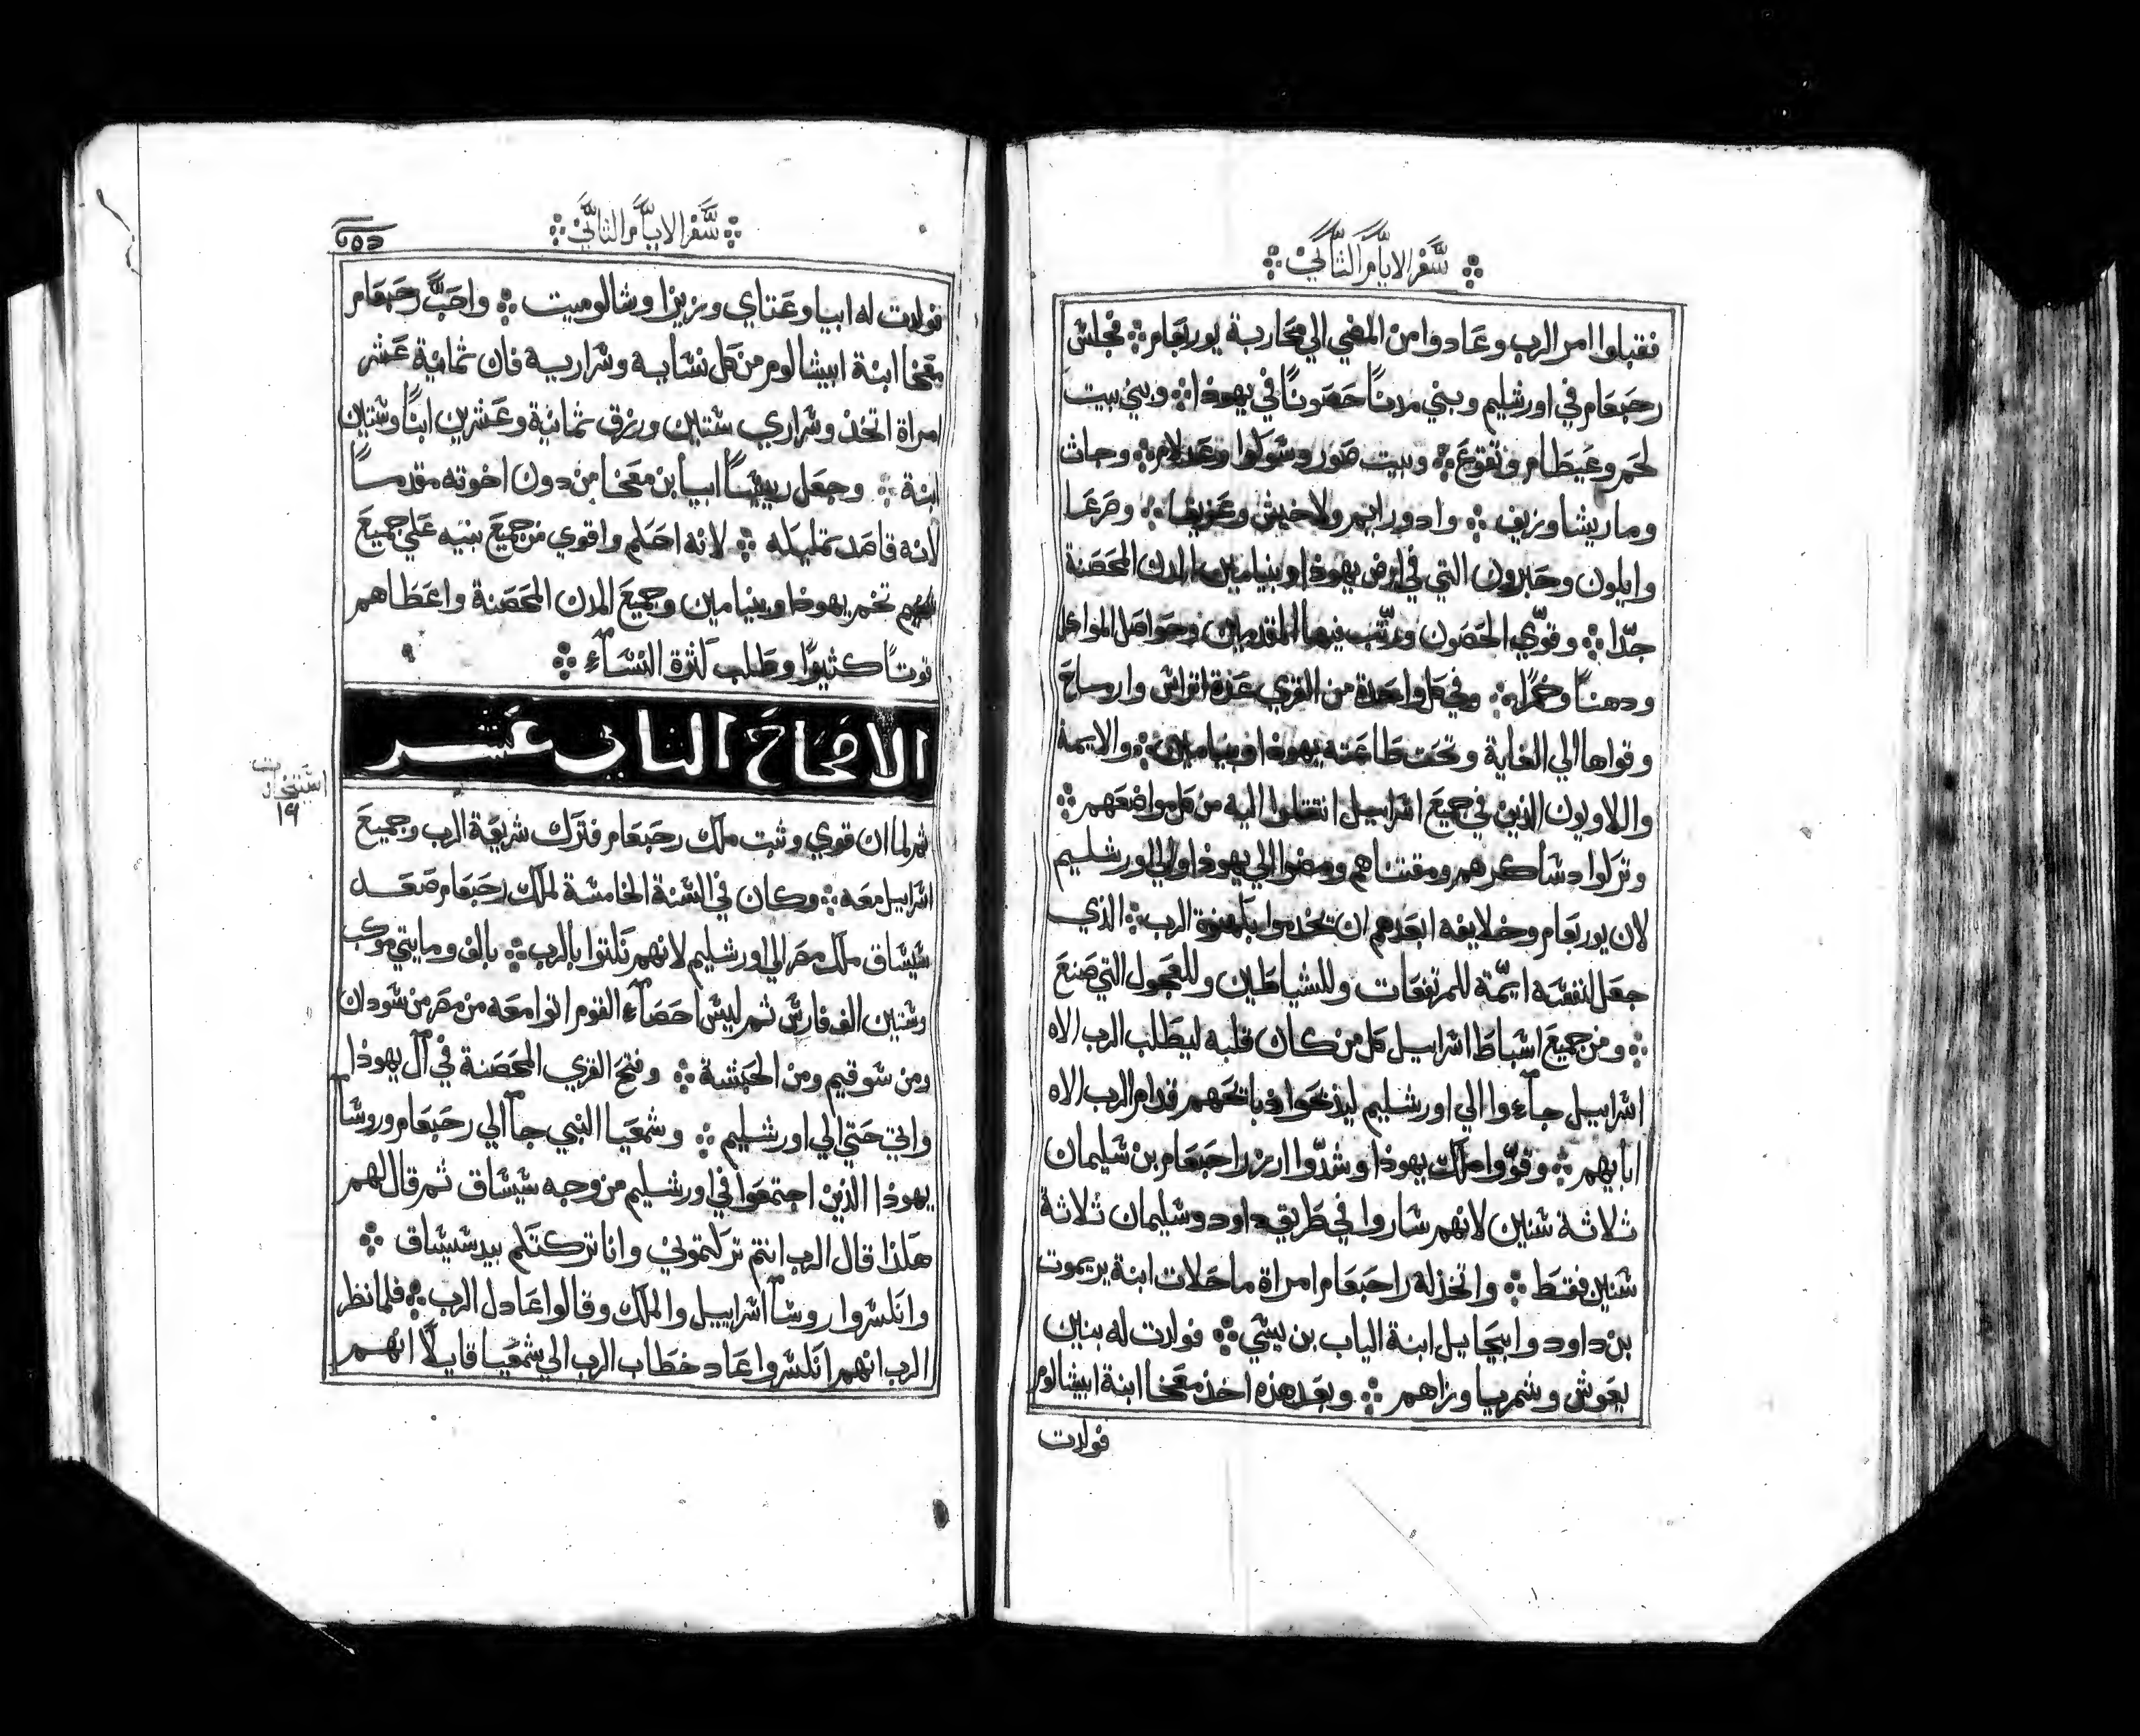 سفر الايام الثاني
فقبلوا امر الرب وعادوا من المضي الي محاربة يوربعام فجلس
رحبعام في اورشليم وبني مدنًا حصونًا في يهوذا وبني بيت
لحم وعيطام وتقوع وبيت صور وسوكوا وعدلام وجاث
وماريشا وزيف وادورايم ولاخيش وعزيقا وصرعا
وايلون وحبرون التي في ارض يهوذا وبنيامين المدن المحصنة
جدّا وقوّي الحصون ورتّب فيها المقدمين وحواصل المواكل
ودهنًا وخمرًا وفي كل واحدة من القري عدة اتراس وارماح
وقواها الي الغاية وتحت طاعته يهوذا وبنيامين والايمة
واللاويون الذين في جميع اسراييل انتقلوا اليه من كل مواضعهم
وتركوا دساكرهم ومقتناهم ومضوا الي يهوذا والي اورشليم
لان يوربعام وخلايفه ابعدهم ان يخدموا بكهنوة الرب الذي
جعل لنفسه ايمّة للمرتفعات وللشياطين وللعجول التي صنع
ومن جميع اسباط اسراييل كل من كان قلبه ليطلب الرب الاه
اسراييل جآءوا الي اورشليم ليذبحوا ذبايحهم قدام الرب الاه
ابايهم وقوّوا ملك يهوذا وشدّوا ازر راحبعام بن سليمان
ثلاثة سنين لانهم ساروا في طريق داود وسليمان ثلاثة
سنين فقط واتخذ له راحبعام امراة ماحلات ابنة يريموت
بن داود وابيحايل ابنة الياب بن يسّي فولدت له بنين
يعوش وشمريا وزاهم وبعد هذه اخذ معخا ابنة ابيشالوم
فولدت
سفر الايام الثاني
فولدت له ابيا وعتاي وزيزا وشالوميت واحبّ رحبعام
معخا ابنة ابيشالوم من كل نسايه وسراريه فان ثمانية عشر
امراة اتخذ وسراري ستين ورزق ثمانية وعشرين ابنًا وستين
ابنة وجعل رييسًا ابيا بن معخا من دون اخوته مقدمًا
لانه قاصد تمليكه لانه احكم واقوي من جميع بنيه علي جميع
تخم يهوذا وبنيامين وجميع المدن المحصنة واعطاهم
قوتًا كثيرًا وطلب كثرة النسآء
الاصحاح الثاني عشر
ثم لما ان قوي وثبت ملك رحبعام فترك شريعة الرب وجميع
اسراييل معه وكان في السنة الخامسة لملك رحبعام صعد
شيشاق ملك مصر الي اورشليم لانهم نكثوا بالرب بالف ومايتي موكب
وستين الف فارس ثم ليس احصآء القوم اتوا معه من مصر من سودان
ومن سوقيم ومن الحبشة وفتح القري المحصنة في آل يهوذا
واتي حتي الي اورشليم وشمعيا النبي جآ الي رحبعام وروسآ
يهوذا الذين اجتمعوا في اورشليم من وجه شيشاق ثم قال لهم
هكذا قال الرب انتم تركتموني وانا تركتكم بيد شيشاق
وانكسروا روسآ اسراييل والملك وقالوا عادل الرب فلما نظر
الرب انهم انكسروا عاد خطاب الرب الي شمعيا قايلًا انهم
١٩